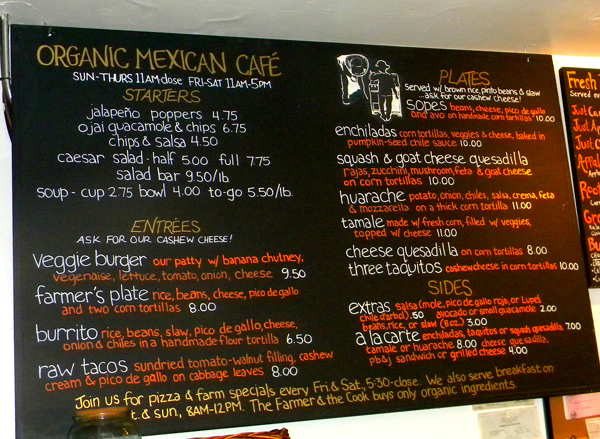 ORGANIC MEXICAN CAFÉ
SUN-THURS 11AM-close FRI-SAT 11AM-5PM
STARTERS
jalapeño poppers 4.75
ojai guacamole & chips 6.75
chips & salsa 4.50
caesar salad - half 5.00 full 7.75
salad bar 9.50/lb
soup - cup 2.75 bowl 4.00 to-go 5.50/lb.
ENTRÉES
ASK FOR OUR CASHEW CHEESE!
veggie burger our patty w/ banana chutney,
vegenaise, lettuce, tomato, onion, cheese 9.50
farmer's plate rice, beans, cheese, pico de gallo
and two corn tortillas 8.00
burrito rice, beans, slaw, pico de gallo, cheese,
onion & chiles in a handmade flour tortilla 6.50
raw tacos sundried tomato-walnut filling, cashew
cream & pico de gallo on cabbage leaves 8.00
PLATES
served w/ brown rice, pinto beans & slaw
...ask for our cashew cheese!
sopes beans, cheese, pico de gallo
and avo on handmade corn tortillas 10.00
enchiladas corn tortillas, veggies & cheese, baked in
pumpkin-seed chile sauce 10.00
squash & goat cheese quesadilla
rajas, zucchini, mushroom, feta & goat cheese
on corn tortillas 10.00
huarache potato, onion, chiles, salsa, crema, feta
& mozzarella on a thick corn tortilla 11.00
tamale made w/ fresh corn, filled w/ veggies,
topped w/ cheese 11.00
cheese quesadilla on corn tortillas 8.00
three taquitos cashew cheese in corn tortillas 10.00
SIDES
extras salsa (mole, pico de gallo roja, or Lupe's
chile d'arbol) .50 avocado or small guacamole 2.00
beans, rice, or slaw (8 oz.) 3.00
a la carte enchiladas, taquitos or squash quesadilla 7.00
tamale or huarache 8.00 cheese quesadilla,
pb&j sandwich or grilled cheese 4.00
Join us for pizza & farm specials every Fri & Sat, 5:30-close. We also serve breakfast on
& Sun, 8AM-12PM. The Farmer & the Cook buys only organic ingredients.
Fresh
Served
Just
Just
Just